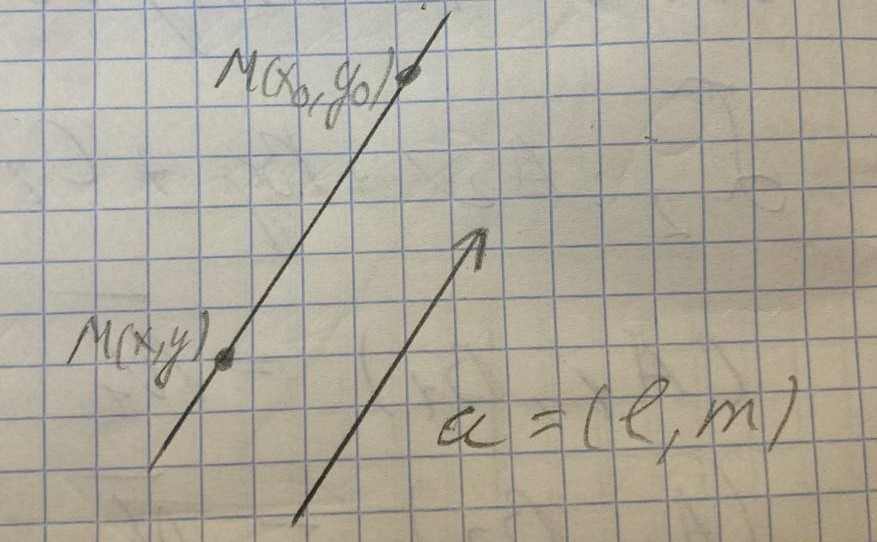 M(x₀,y₀)
M(x,y)
a=(l,m)